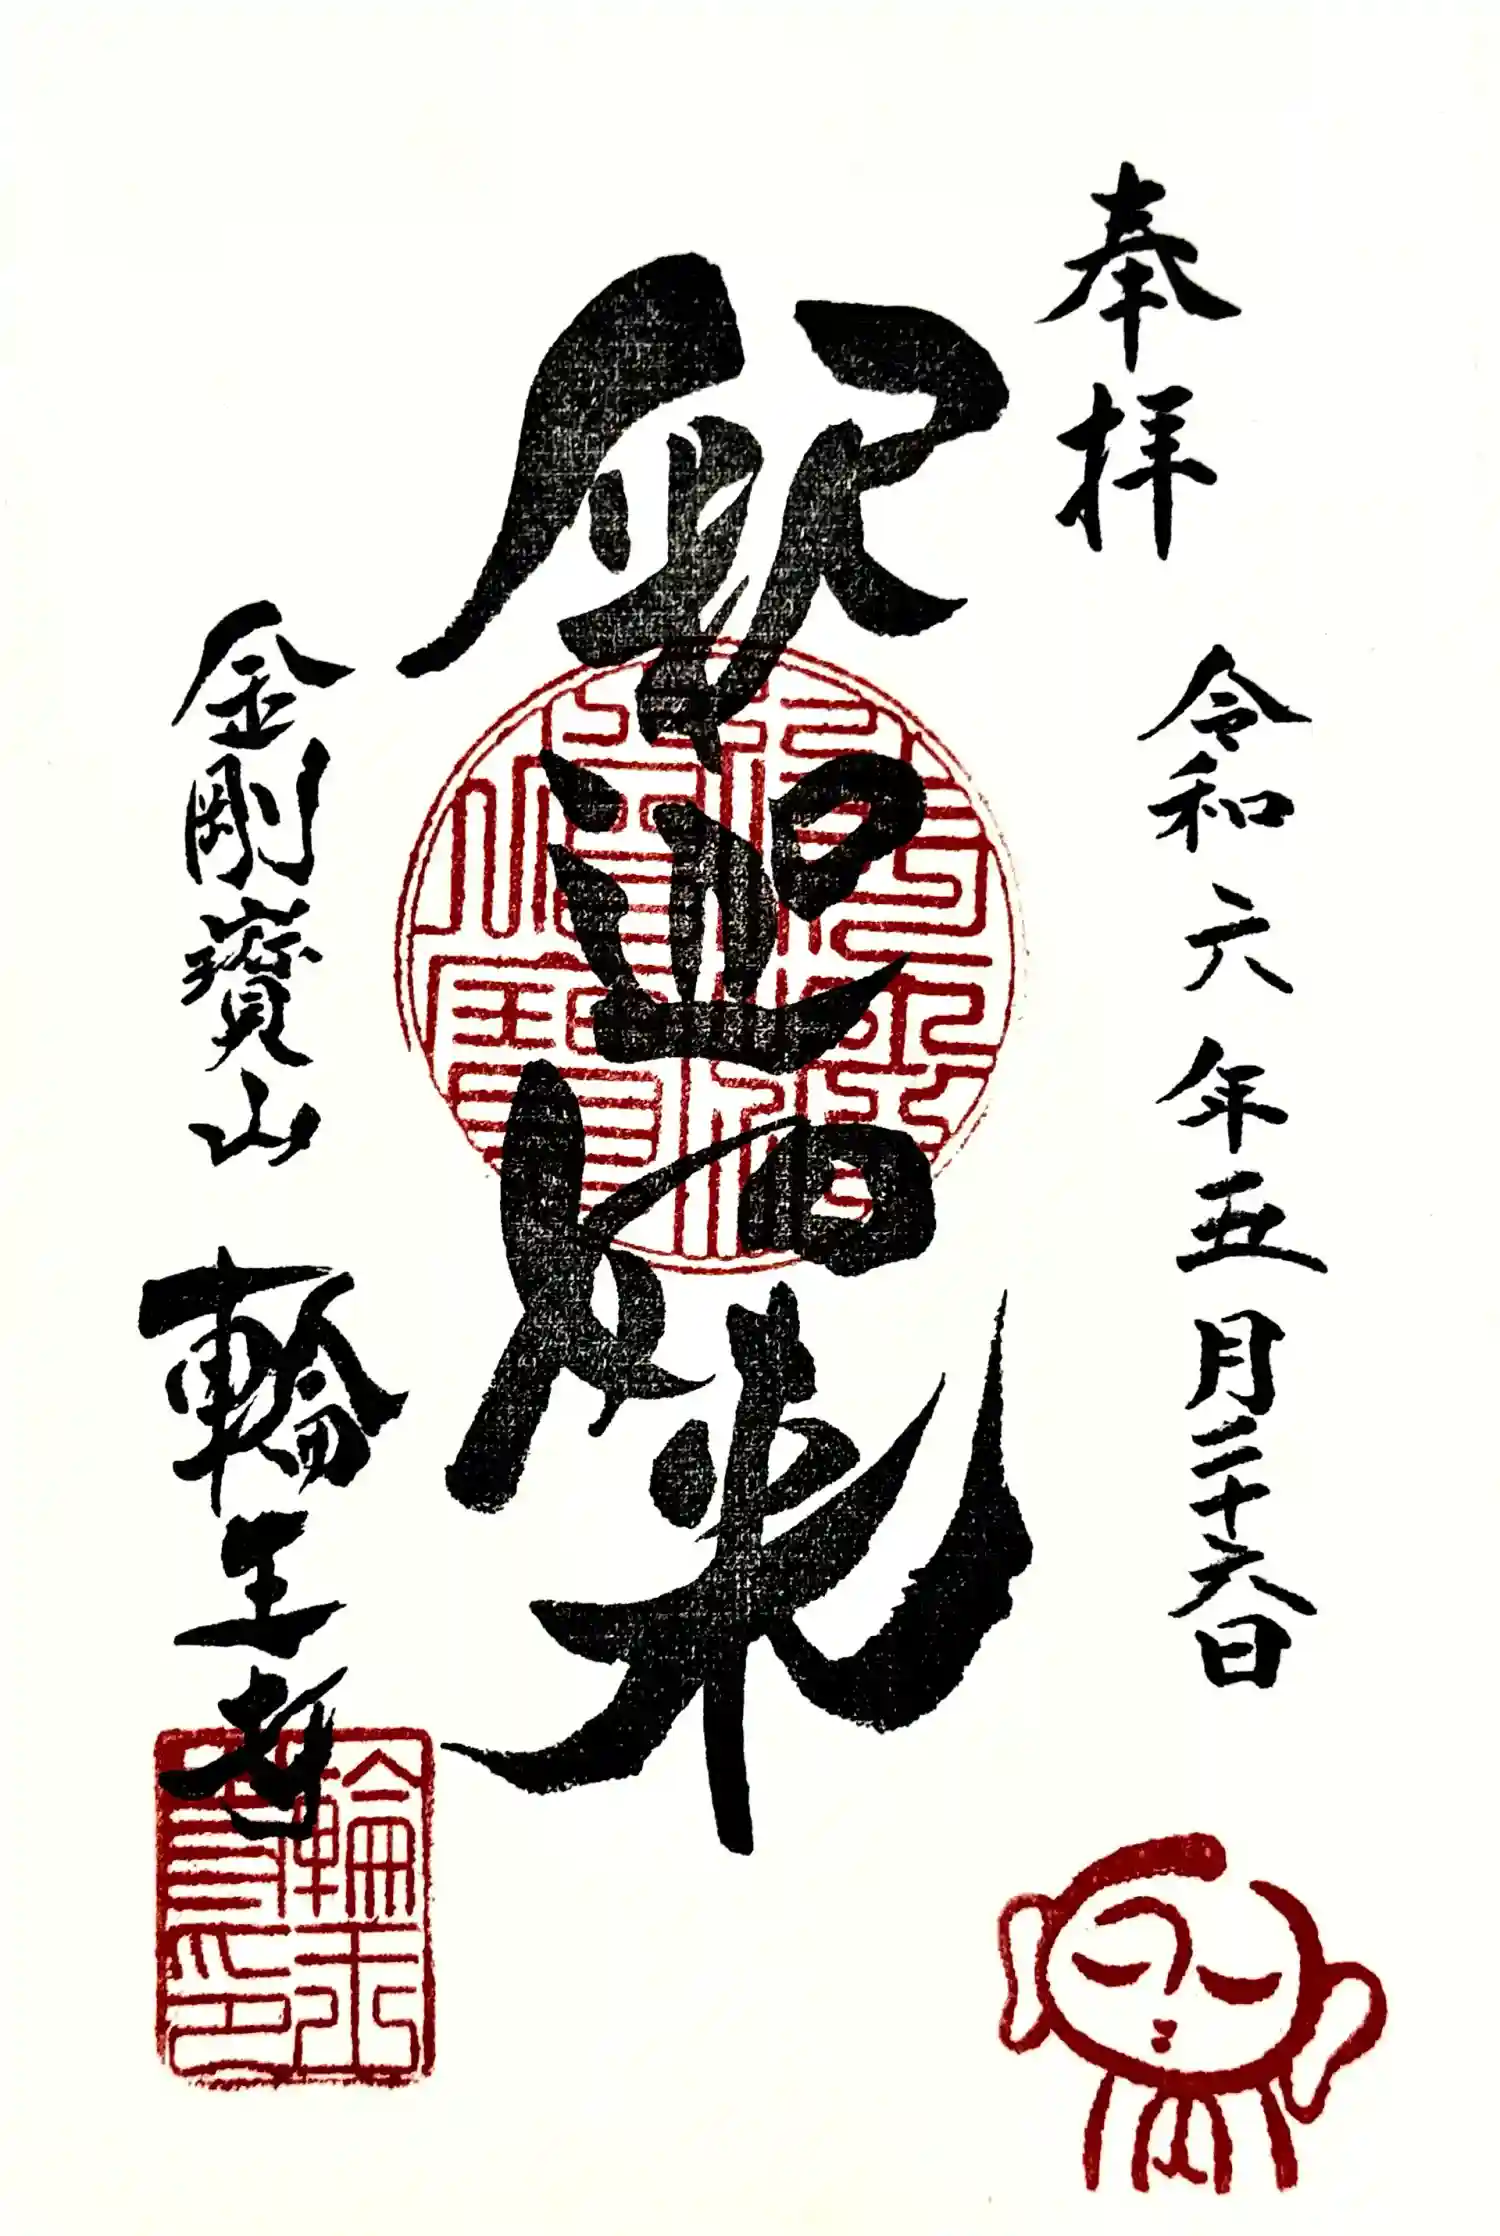 奉拝
令和六年五月二十六日
釈迦如来
金剛寶山 輪王寺
輪王寺印